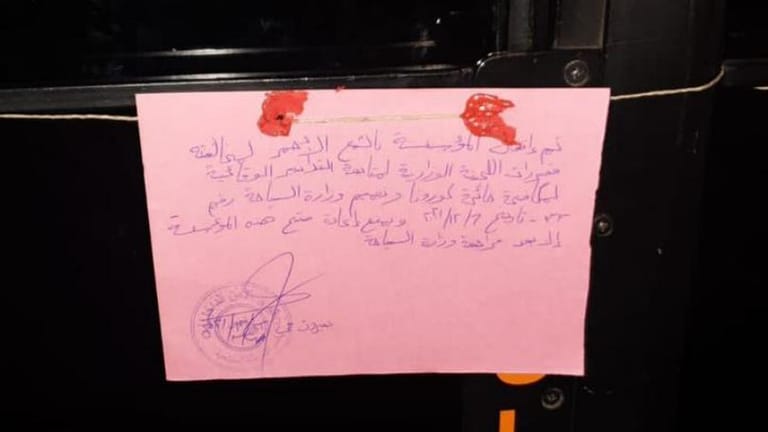 تم اقفال المؤسسة بالشمع الاحمر لمخالفته
مقررات اللجنة الوزارية لمتابعة التدابير الوقائية
لمكافحة جائحة كورونا وتعميم وزارة السياحة رقم
تاريخ ويمنع إعادة فتح هذه المؤسسة
إلا بعد مراجعة وزارة السياحة